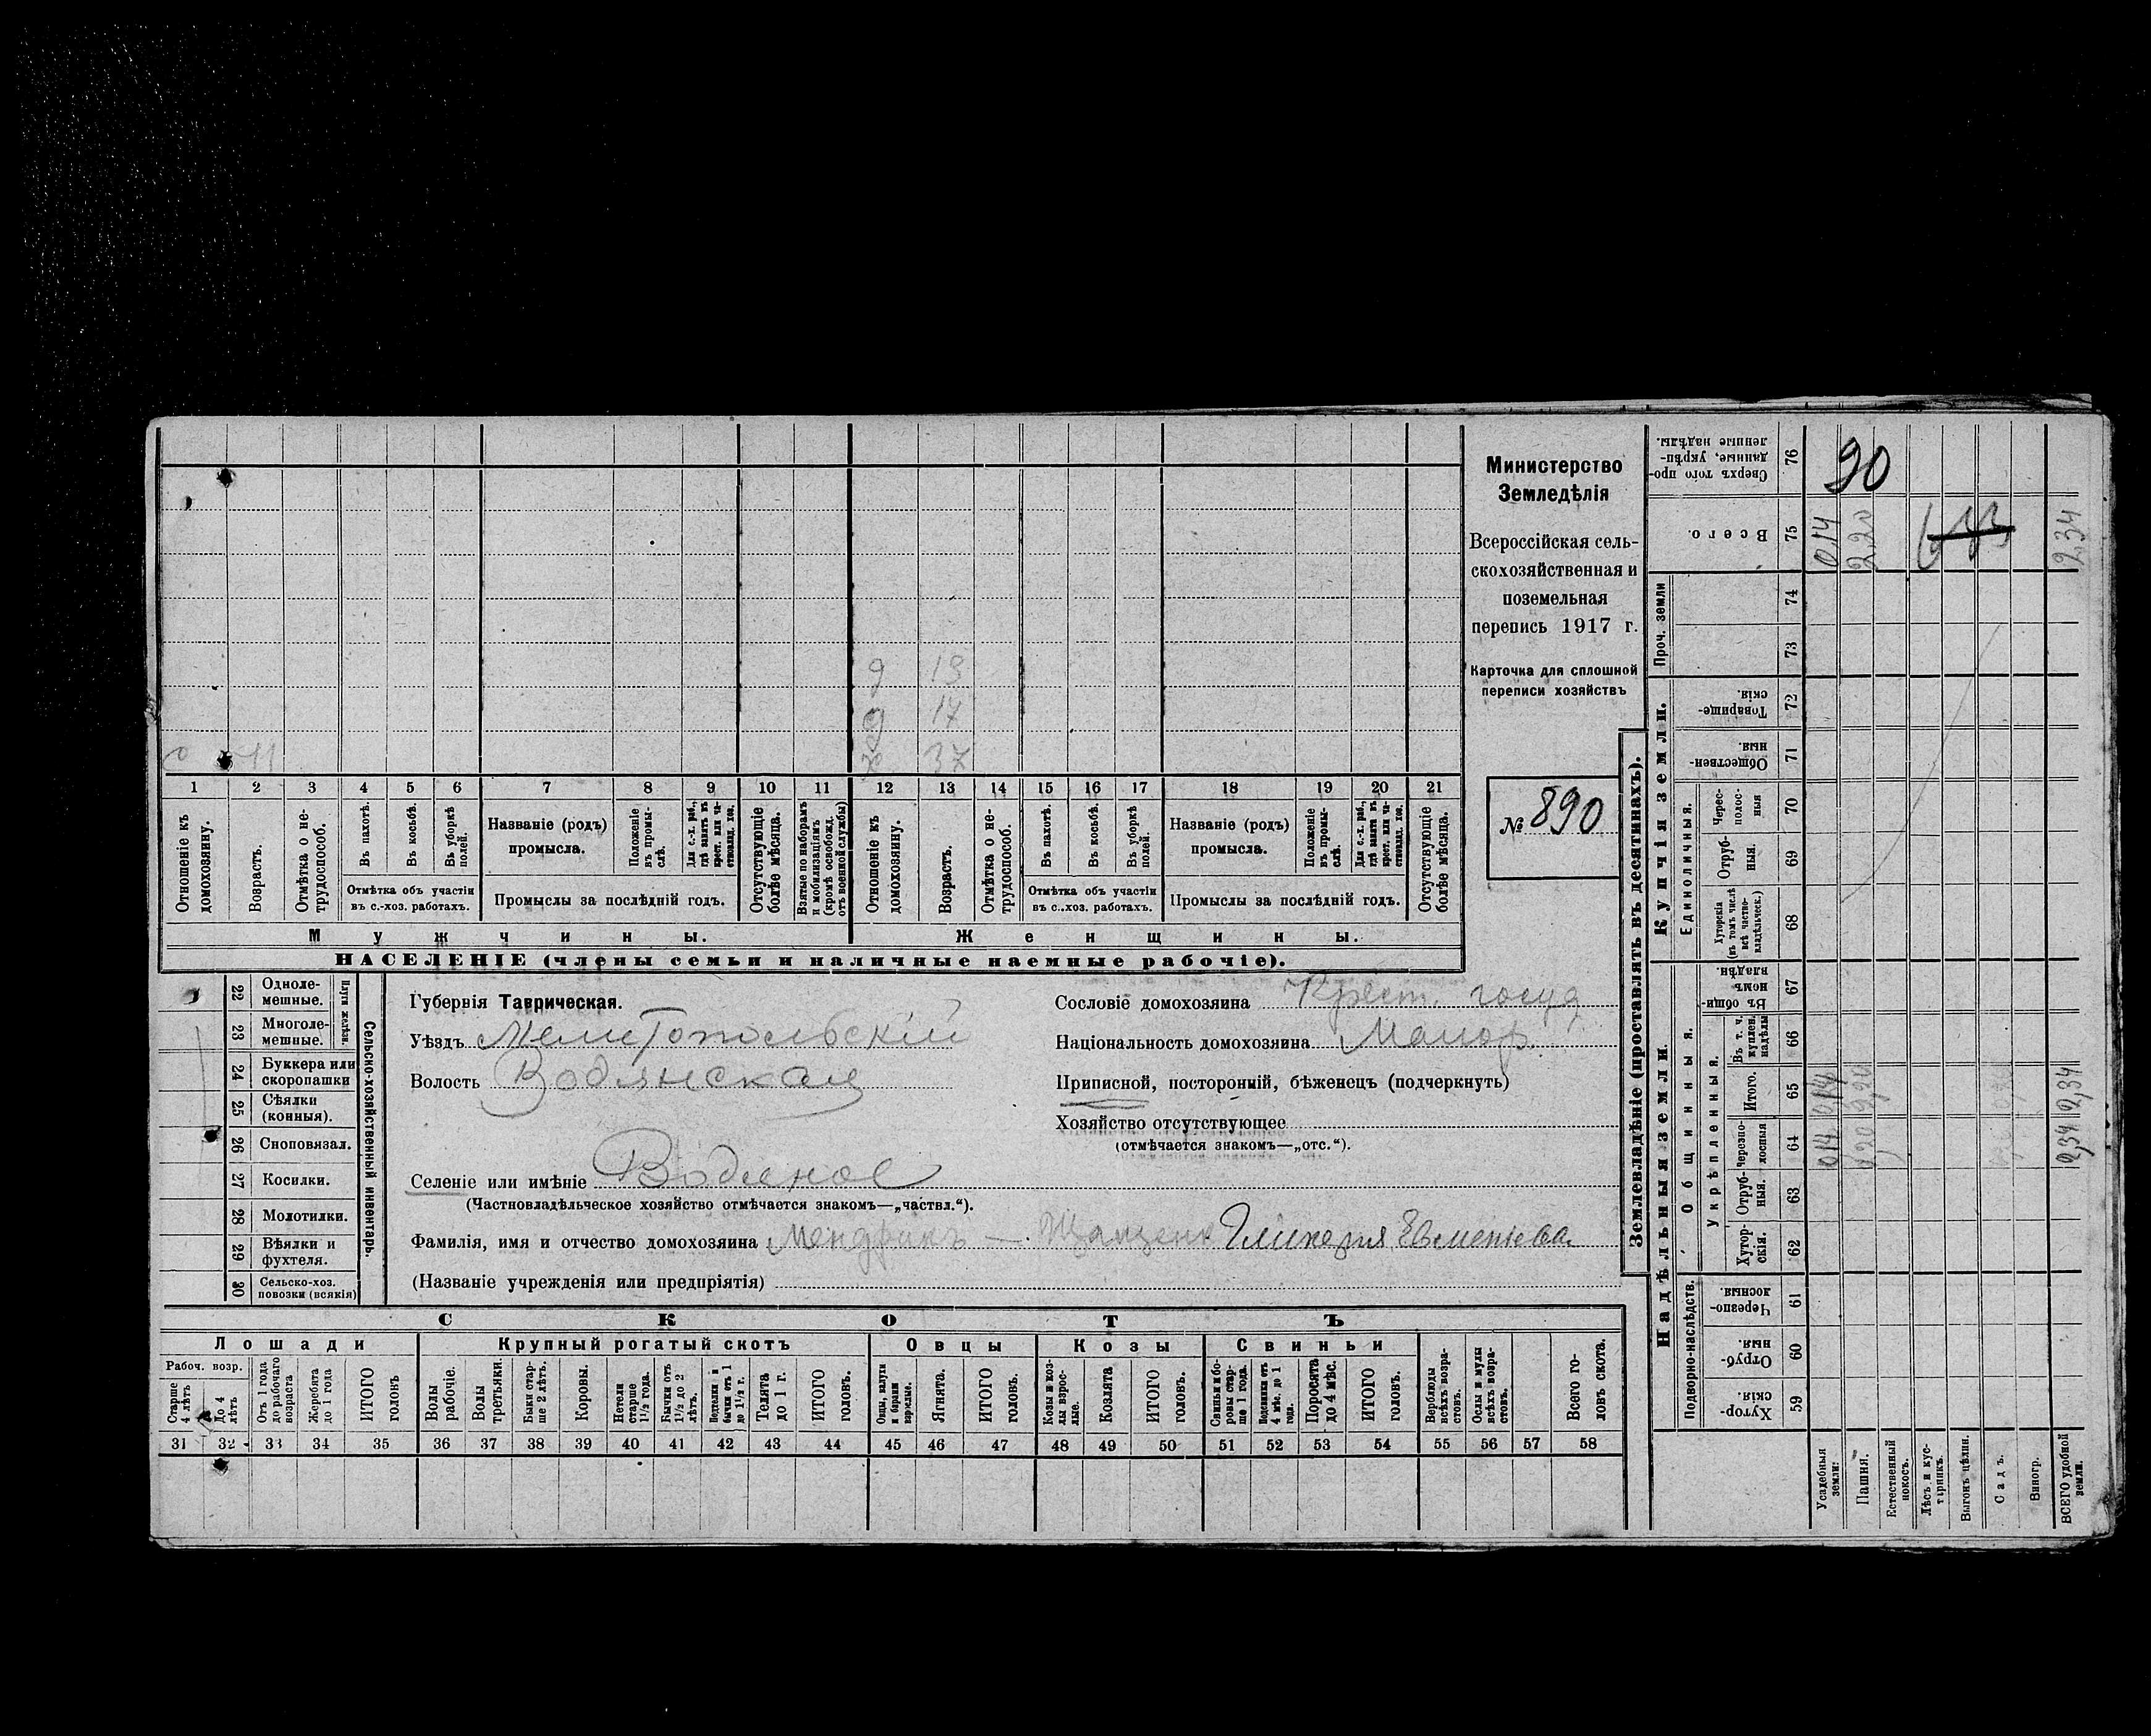 Министерство
Земледѣлія
Всероссійская сель-
скохозяйственная и
поземельная
перепись 1917 г.
Карточка для сплошной
переписи хозяйствъ
№ 890
д 13
д 17
ж 37
с 11
1 2 3 4 5 6 7 8 9 10 11 12 13 14 15 16 17 18 19 20 21
Отношеніе къ домохозяину.
Возрастъ.
Отмѣтка о не-трудоспособ.
Въ пахотѣ.
Въ косьбѣ.
Въ уборкѣ полей.
Отмѣтка объ участіи
въ с.-хоз. работахъ.
Названіе (родъ)
промысла.
Положеніе въ промы-слѣ.
Для с.-х. раб., гдѣ занятъ въ крест. или ча-стновлад. хоз.
Промыслы за послѣдній годъ.
Отсутствующіе болѣе мѣсяца.
Взятые по наборамъ и мобилизаціямъ (кромѣ освобожд. отъ военной службы)
Отношеніе къ домохозяину.
Возрастъ.
Отмѣтка о не-трудоспособ.
Въ пахотѣ.
Въ косьбѣ.
Въ уборкѣ полей.
Отмѣтка объ участіи
въ с..хоз. работахъ.
Названіе (родъ)
промысла.
Положеніе въ промы-слѣ.
Для с.-х. раб., гдѣ занятъ въ крест. или ча-стновлад. хоз.
Промыслы за послѣдній годъ.
Отсутствующіе болѣе мѣсяца.
Мужчины.
Женщины.
НАСЕЛЕНІЕ (члены семьи и наличные наемные рабочіе).
22 Одноле-мешные.
23 Многоле-мешные.
Плуги желѣзн.
24 Буккера или скоропашки
25 Сѣялки (конныя).
26 Сноповязал.
27 Косилки.
28 Молотилки.
29 Вѣялки и фухтеля.
30 Сельско-хоз. повозки (всякія)
Сельско-хозяйственный инвентарь.
Губернія Таврическая.
Уѣздъ Мелитопольскій
Волость Водянская
Селеніе или имѣніе Водяное
(Частновладѣльческое хозяйство отмѣчается знакомъ—„частвл.“).
Фамилія, имя и отчество домохозяина Мендрикъ —
(Названіе учрежденія или предпріятія)
Сословіе домохозяина Крест. госуд
Національность домохозяина Малор.
Приписной, посторонній, бѣженецъ (подчеркнуть)
Хозяйство отсутствующее
(отмѣчается знакомъ—„отс.“).
СКОТЪ
Лошади
Крупный рогатый скотъ
Овцы
Козы
Свиньи
Рабоч. возр.
Старше 4 лѣтъ
До 4 лѣтъ
Отъ 1 года до рабочаго возраста
Жеребята до 1 года
ИТОГО головъ
Волы рабочіе.
Волы третьяки.
Быки стар-ше 2 лѣтъ.
Коровы.
Нетели старше 1½ года.
Бычки отъ 1½ до 2 лѣтъ.
Подтелки и бычки отъ 1 до 1½ г.
Телята до 1 г.
ИТОГО головъ.
Овцы, валухи и бараны взрослые.
Ягнята.
ИТОГО головъ.
Козы и коз-лы взрос-лые.
Козлята
ИТОГО головъ.
Свиньи и бо-ровы стар-ше 1 года.
Подсвинки отъ 4 мѣс. до 1 года.
Поросята до 4 мѣс.
ИТОГО головъ.
Верблюды всѣхъ возра-стовъ.
Ослы и мулы всѣхъ возра-стовъ.
Всего го-ловъ скота.
31 32 33 34 35 36 37 38 39 40 41 42 43 44 45 46 47 48 49 50 51 52 53 54 55 56 57 58
Землевладѣніе (проставлять въ десятинахъ).
Надѣльныя земли.
Купчія земли.
Проч. земли
Подворно-наслѣдств.
Общинныя.
Укрѣпленныя.
Единоличныя.
Хутор-скія. 59
Отруб-ныя. 60
Черезпо-лосныя. 61
Хутор-скія. 62
Отруб-ныя. 63
Черезпо-лосныя 64
Итого. 65
Въ т. ч. куплен. надѣлы 66
Въ общи-номъ владѣн. 67
Хуторскія (въ томъ числѣ всѣ частно-владѣльческ.) 68
Отруб-ныя. 69
Черес-полос-ныя 70
Обществен-ныя. 71
Товарище-скія. 72
73
74
Всего. 75
Сверхъ того про-данные, укрѣп-ленные надѣлы. 76
90
Усадебныя земли: 0,14 0,14 0,14
Пашня. 2,20
Естественный покосъ.
Лѣсъ и кус-тарникъ.
Выгонъ цѣлин.
Садъ.
Виногр.
ВСЕГО удобной земли. 2,34 2,34 2,34